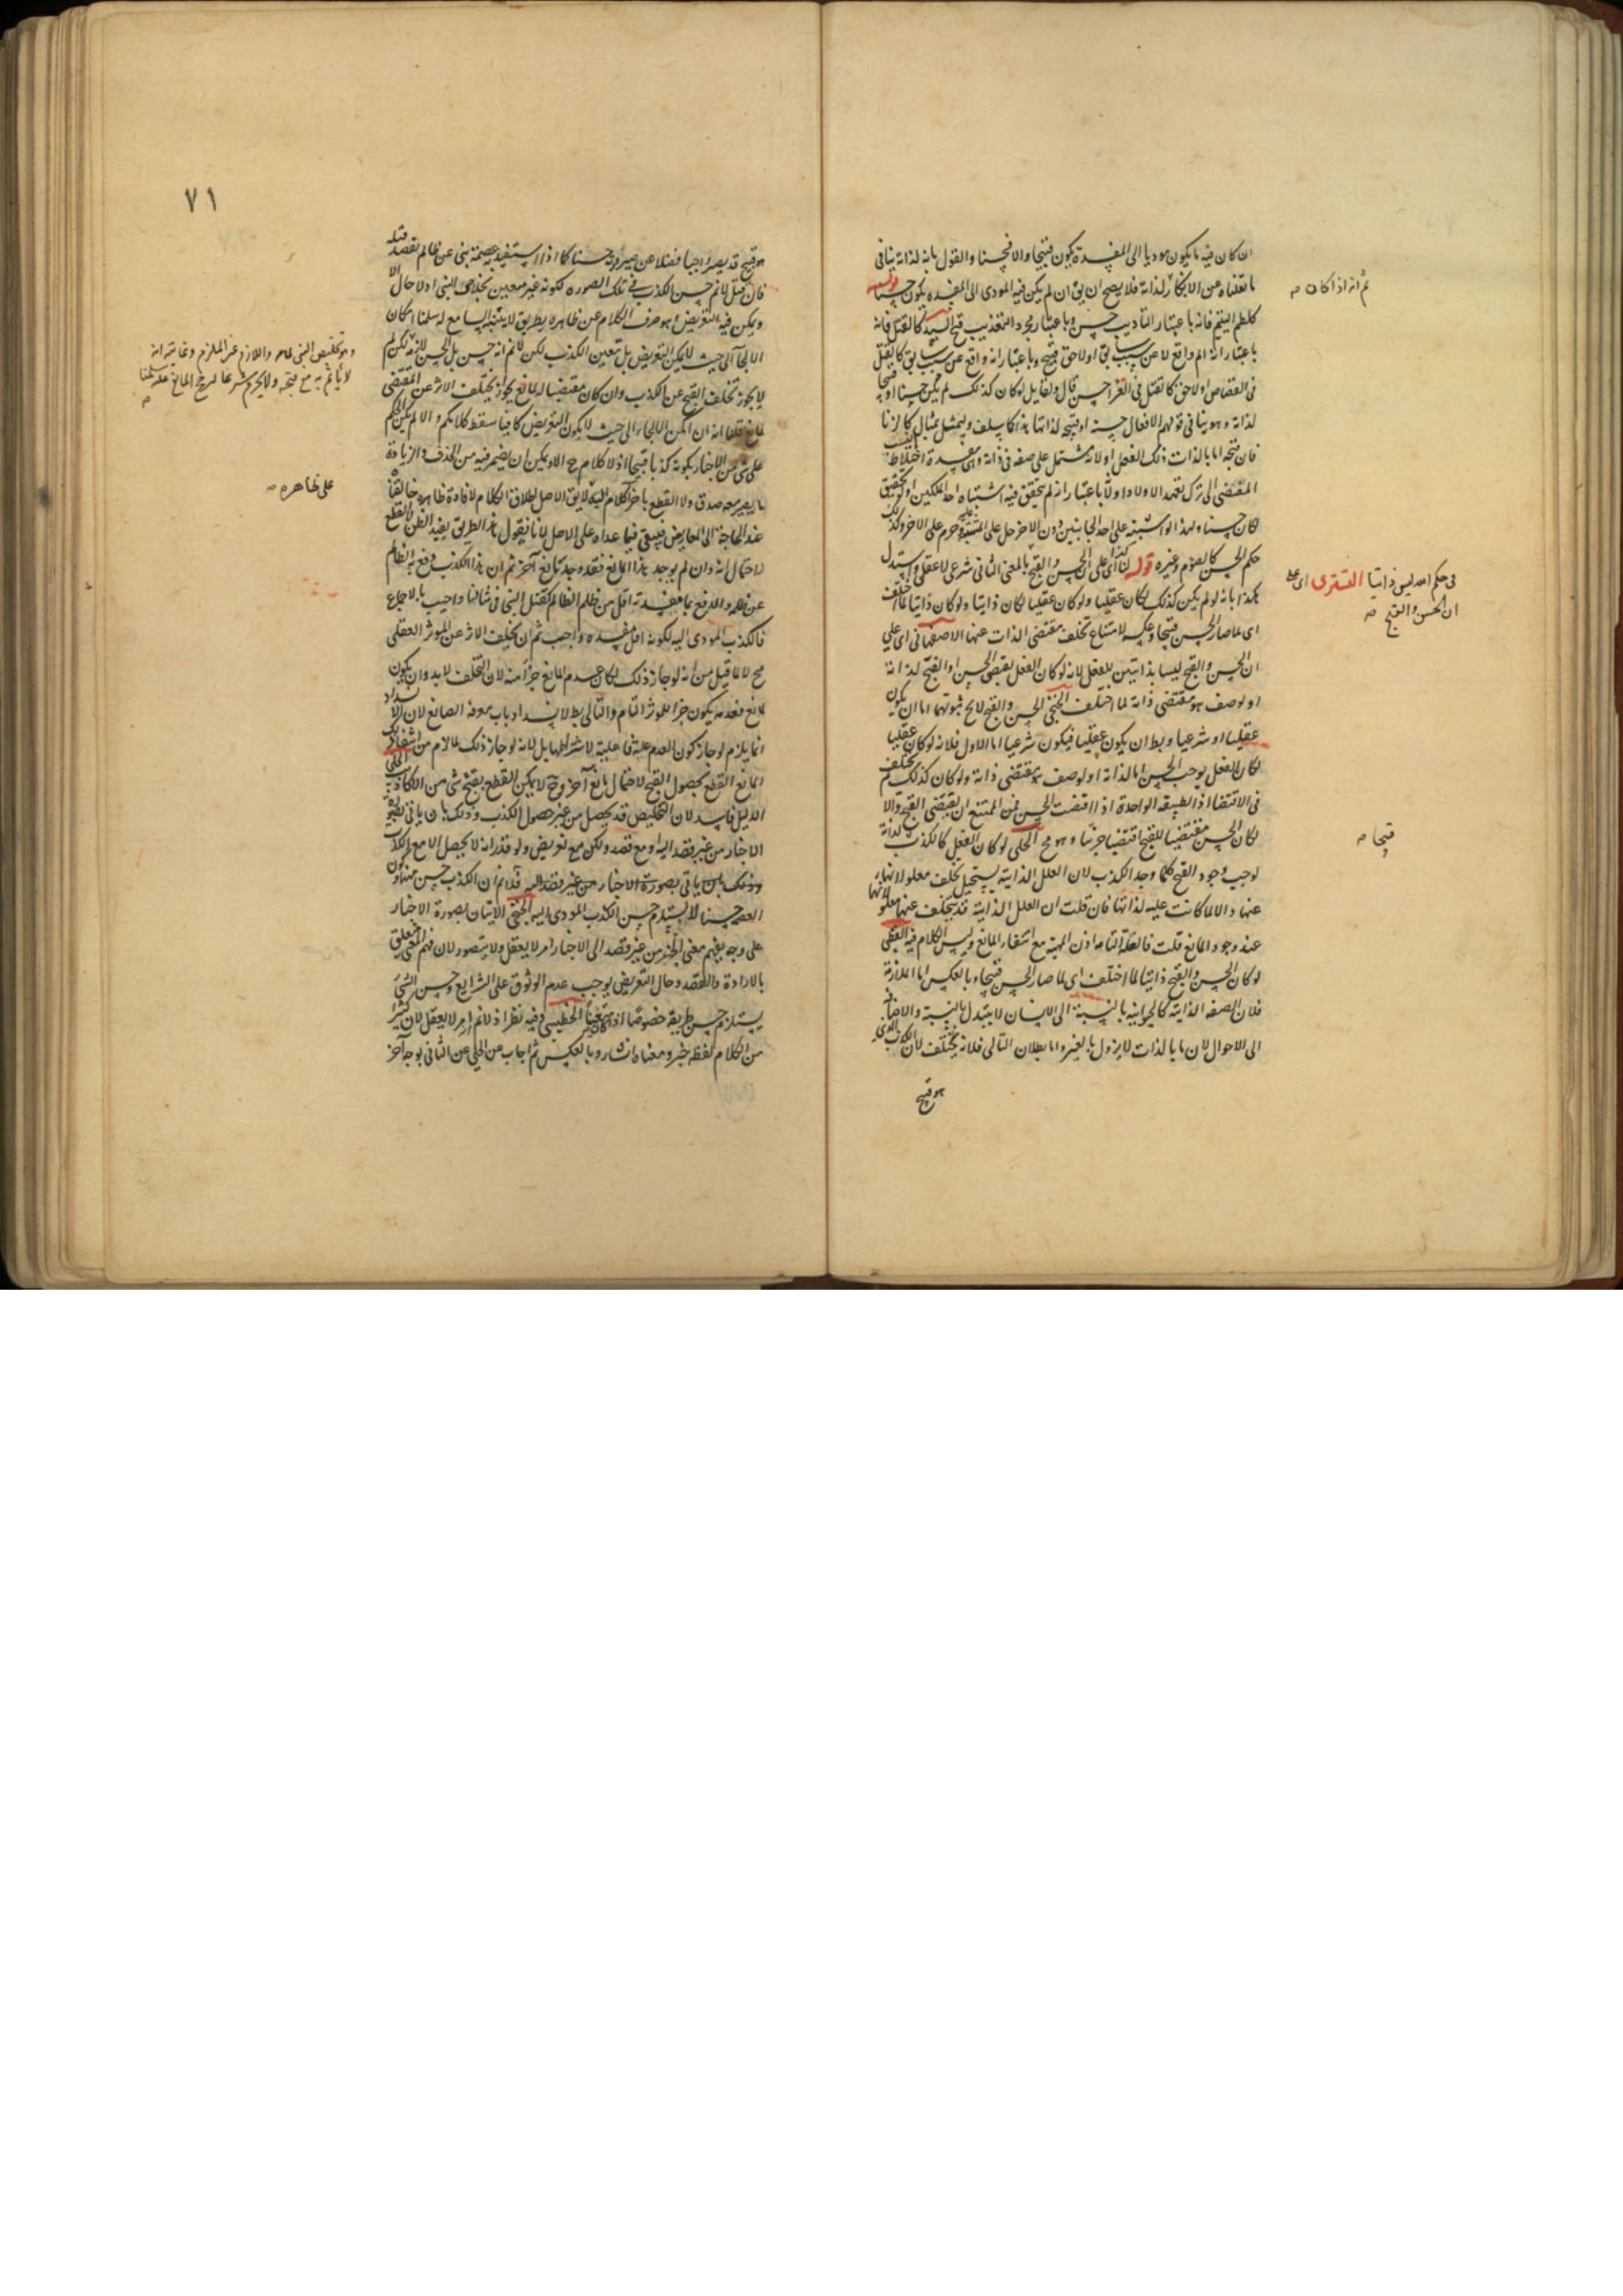 ان كان فيه ما يكون موديا الى المفسدة يكون قبيحا والا فحسنا والقول بانه لذاته ينافى
ما نقلناه عن الابكار لذاته فلا يصح ان يق ان لم يكن فيه المودى الى المفسدة يكون حسنا
كلطم اليتيم فانه باعتبار التاديب حسن وباعتبار مجرد التعذيب قبيح كالقتل فانه
باعتبار انه الم واقع لا عن سبب سابق او لاحق قبيح وباعتبار انه واقع عن سبب سابق كالقتل
فى القصاص او لاحق كالقتل فى الغزا حسن قال ولقايل لو كان كذلك لم يكن حسنا او قبيحا
لذاته وهو ينافى قولهم الافعال حسنة او قبيحة لذاتها هذا كما سلف وليمثل بمثال كالزنا
فان قبحه اما بالذات ذلك الفعل او لانه مشتمل على صفة فى ذاته وهى مفسدة اختلاط النسب
المفضى الى ترك تعهد الاولاد اولا باعتبار انه لم يتحقق فيه اشتباه احد الملكين او تحقيق
لكان حسنا ولهذا لو اشتبه على احد الجانبين دون الاخر حل على المشتبه عليه وحرم على الاخر وكذلك
حكم الحسن كالصوم وغيره قوله لنا اى على ان الحسن والقبح بالمعنى الثانى شرعى لا عقلى واستدل
هكذا بانه لو لم يكن كذلك لكان عقليا ولو كان عقليا لكان ذاتيا ولو كان ذاتيا لما اختلف
اى لما صار الحسن قبيحا وعكسه لامتناع تخلف مقتضى الذات عنها الاصفهانى اى على
ان الحسن والقبح ليسا بذاتيين للفعل لانه لو كان الفعل يقتضى الحسن او القبح لذاته
او لوصف هو مقتضى ذاته لما اختلف الخنجى الحسن والقبح لا يخ ثبوتهما اما ان يكون
عقليا او شرعيا وبط ان يكون عقليا فيكون شرعيا اما الاول فلانه لو كان عقليا
لكان الفعل يوجب الحسن اما لذاته او لوصف هو مقتضى ذاته ولو كان كذلك لم يختلف
فى الاقتضا اذ الطبيعة الواحدة اذا اقتضت الحسن فمن الممتنع ان يقتضى القبح والا
لكان الحسن مقتضيا للقبح اقتضيا جزئيا وهو مح الحلى لو كان الفعل كالكذب لذاته
لوجب وجود القبح كلما وجد الكذب لان العلل الذاتية يستحيل تخلف معلولاتها
عنها والا لما كانت علية لذاتها فان قلت ان العلل الذاتية قد يتخلف عنها معلولاتها
عند وجود المانع قلت فالعلة التامة اذن المهية مع انتفاء المانع وليس الكلام فيه القطبى
لو كان الحسن والقبح ذاتيا لما اختلف اى لما صار الحسن قبيحا وبالعكس اما الملازمة
فلان الصفة الذاتية كالحيوانية بالنسبة الى الانسان لا يتبدل بالنسبة والاضافة
الى الاحوال لان ما بالذات لا يزول بالغير واما بطلان التالى فلانه يختلف لان الكذب الذى
هو قبيح
ثم انه اذا كان صح
فى حكم احد ليس ذاتيا التسترى اى على
ان الحسن والقبح صح
قبحا صح
٧١
هو قبيح قد يصير واجبا فضلا عن صيرورته حسنا كما اذا استفيد به عصمة نبى عن ظالم يقصد قتله
فان قيل لا نم حسن الكذب فى تلك الصورة لكونه غير متعين لخلاص النبى اذ لا حال الا
ويمكن فيه التعريض وهو صرف الكلام عن ظاهره بطريق لا يتنبه السامع له سلمنا امكان
الالجاء الى حيث لا يمكن التعريض بل تعين الكذب لكن لا نم انه حسن بل الحسن لازمه لكن لم
لا يجوز تخلف القبح عن الكذب وان كان مقتضيا له لمانع يجوز تخلف الاثر عن المقتضى
لمانع قلنا انه ان امكن الالجاء الى حيث لا يكون التعريض كافيا سقط كلامكم والا لم يمكن الحكم
على شى من الاخبار بكونه كذبا قبيحا اذ لا كلام ح الا ويمكن ان يضمر فيه من الحذف والزيادة
ما يصير معه صدق ولا القطع باخر الكلام اليه لا يق الاصل اطلاق الكلام لافادة ظاهره خالفنا
عند الحاجة الى المعاريض فيبقى فيما عداه على الاصل لانا نقول هذا الطريق يفيد الظن لا القطع
لاحتمال انه وان لم يوجد هذا المانع فقد وجد مانع آخر ثم ان هذا الكذب دفع به الظالم
عن ظلمه والدفع بما مفسدته اقل من ظلم الظالم كقتل النبى فى مثالنا واجب بالاجماع
فالكذب المودى اليه لكونه اقل مفسدة واجب ثم ان تخلف الاثر عن الموثر العقلى
مح لا لما قيل من انه لو جاز ذلك لكان عدم المانع جزأ منه لان التخلف لا بد وان يكون
لمانع فعدمه يكون جزا للموثر التام والتالى بط لانسداد باب معرفة الصانع لان الانسداد
انما يلزم لو جاز كون العدم علة فاعلية لا شرطها بل لانه لو جاز ذلك
المانع القطع بحصول القبح لاحتمال مانع آخر وح لا يمكن القطع بقبح شى من الاكاذيب الحلى
الدليل فاسد لان التخليص قد يحصل من غير حصول الكذب وذلك بان ياتى بصورة
الاخبار من غير قصد اليه او مع قصد ولكن مع تعريض ولو قدر انه لا يحصل الا مع الكذب
وذلك بان ياتى بصورة الاخبار من غير قصد اليه فلا نم ان الكذب حسن منها وكون
العصمة حسنا لا يستلزم حسن الكذب المودى اليه الخنجى الاتيان بصورة الاخبار
على وجه يفهم معنى الخبر من غير قصد الى الاخبار امر لا يعقل ولا يتصور لان فهم المعنى يتعلق
بالارادة والقصد وحال التعريض يوجب عدم الوثوق على الشرايع وحسن الشئ
يستلزم حسن طريقه خصوصا اذا كان متعينا الخطيبى وفيه نظر اذ لا نم انه امر لا يعقل لان كثيرا
من الكلام لفظه خبر ومعناه انشاء وبالعكس ثم اجاب عن الحلى عن الثانى بوجه آخر
لا ياثم به مع قبحه ولا يحرم شرعا لرجح المانع عليه سلمنا
صح
على ظاهره صح